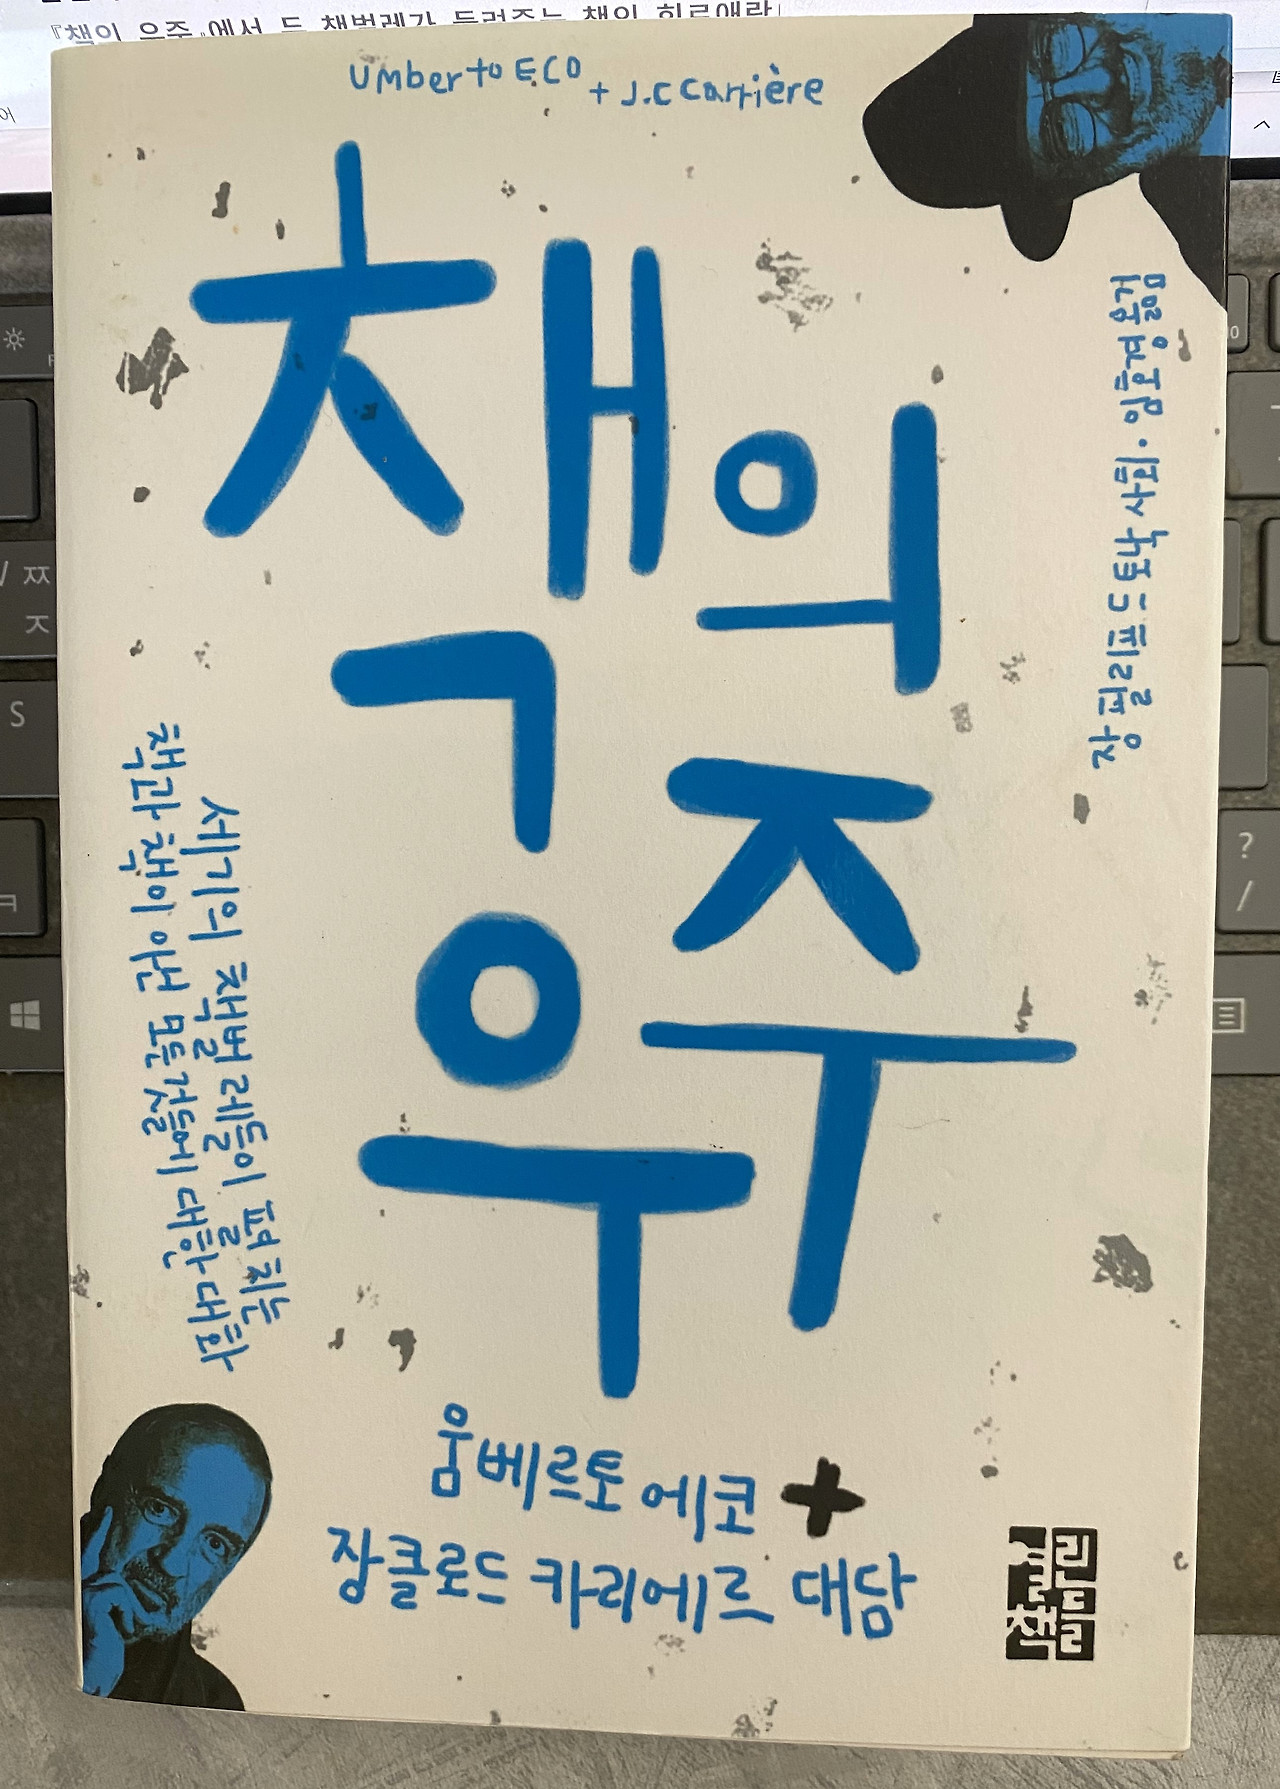 『책의 우주』에서 두 책벌레가 들려주는 책의 히로애락
umberto ECO + J.C Carrière
책의
우주
장필리프 드 토낙 사회・임호경 옮김
세기의 책벌레들이 펼치는
책과 책이 아닌 모든 것들에 대한 대화
움베르토 에코 +
장클로드 카리에르 대담
열린책들
ㅉ
ㅈ
S
ㅋ
?
/